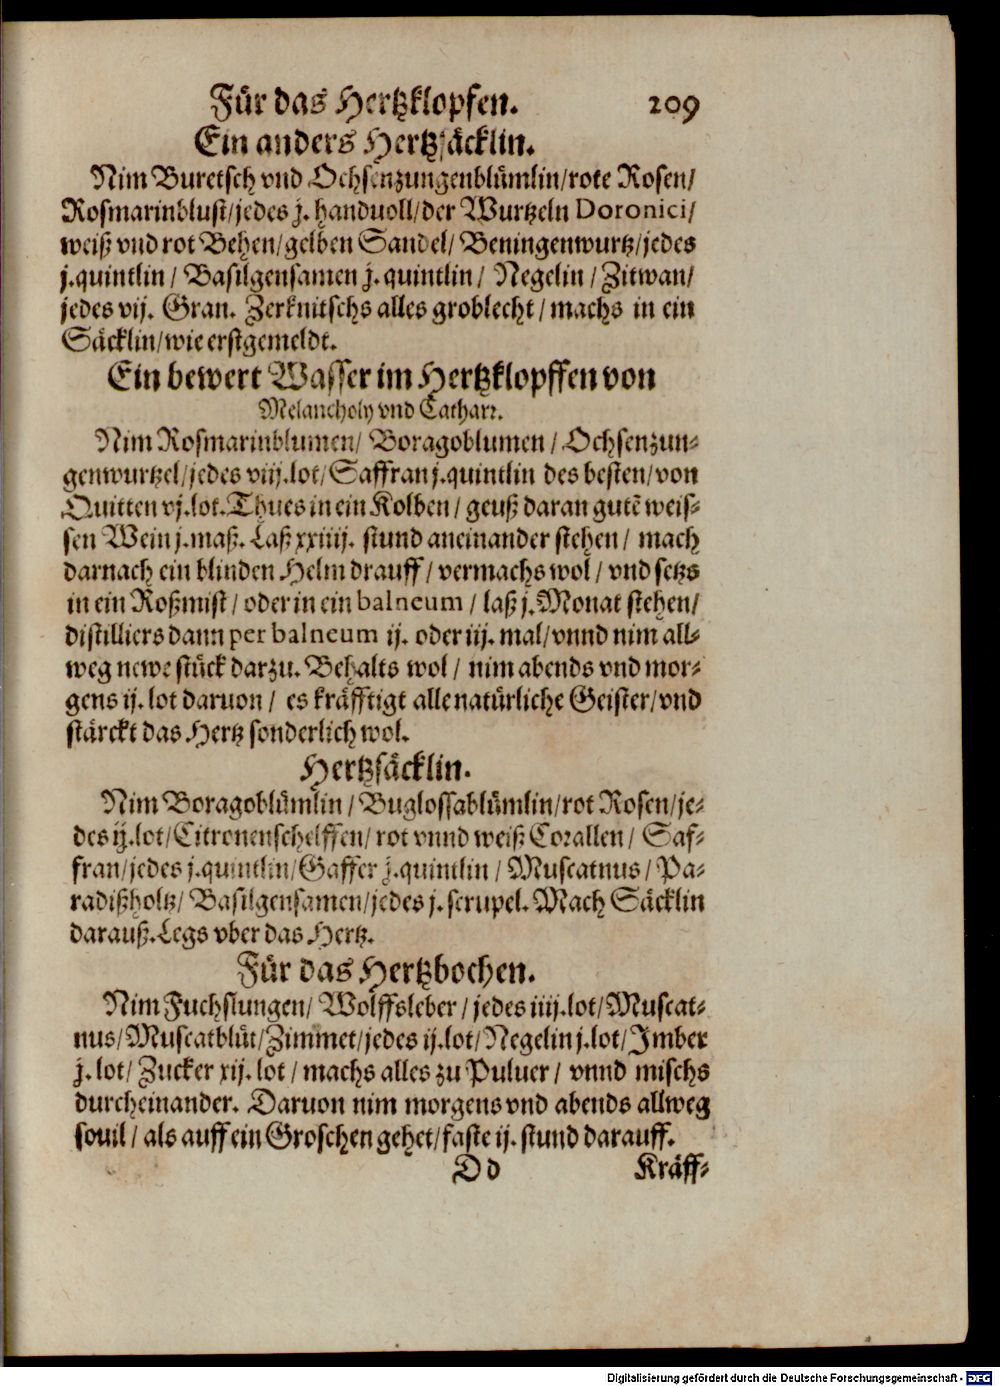 Für das Hertzklopfen. 209
Ein anders Hertzsäcklin.
Nim Buretsch vnd Ochsenzungenblümlin/rote Rosen/
Rosmarinblust/jedes j. handuoll/der Wurtzeln Doronici/
weiß vnd rot Behen/gelben Sandel/Beningenwurtz/jedes
j.quintlin/ Basilgensamen j. quintlin/ Negelin/Zitwan/
jedes vij. Gran. Zerknitschs alles groblecht/machs in ein
Säcklin/wie erstgemeldt.
Ein bewert Wasser im Hertzklopffen von
Melancholy vnd Catharr.
Nim Rosmarinblumen/ Boragoblumen/Ochsenzun-
genwurtzel/jedes viij.lot/Saffran j.quintlin des besten/von
Quitten vj.lot. Thues in ein Kolben/geuß daran gutẽ weis-
sen Wein j.maß. Laß xxiiij. stund aneinander stehen/ mach
darnach ein blinden Helm drauff/vermachs wol/vnd setzs
in ein Roßmist/oder in ein balneum/laß j. Monat stehen/
distilliers dann per balneum ij. oder iij. mal/vnnd nim all-
weg newe stück darzu. Behalts wol/ nim abends vnd mor-
gens ij. lot daruon/ es kräfftigt alle natürliche Geister/vnd
stärckt das Hertz sonderlich wol.
Hertzsäcklin.
Nim Boragoblümlin/Buglossablümlin/rot Rosen/je-
des ij.lot/Citronenschelffen/rot vnnd weiß Corallen/ Saf-
fran/jedes j.quintlin/Gaffer j.quintlin/ Muscatnus/ Pa-
radißholtz/ Basilgensamen/jedes j. scrupel. Mach Säcklin
darauß. Legs vber das Hertz.
Für das Hertzbochen.
Nim Fuchslungen/ Wolffsleber/jedes iiij.lot/Muscat-
nus/Muscatblüt/Zimmet/jedes ij.lot/Negelin j.lot/Imber
j. lot/ Zucker xij. lot/machs alles zu Puluer/ vnnd mischs
durcheinander. Daruon nim morgens vnd abends allweg
souil/als auff ein Groschen gehet/faste ij. stund darauff.
Dd Kräff-
Digitalisierung gefördert durch die Deutsche Forschungsgemeinschaft - DFG